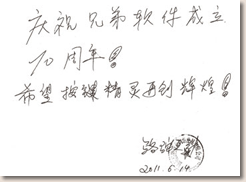 庆祝兄弟软件成立
10周年!
希望按键精灵再创辉煌!
2011.6.14.